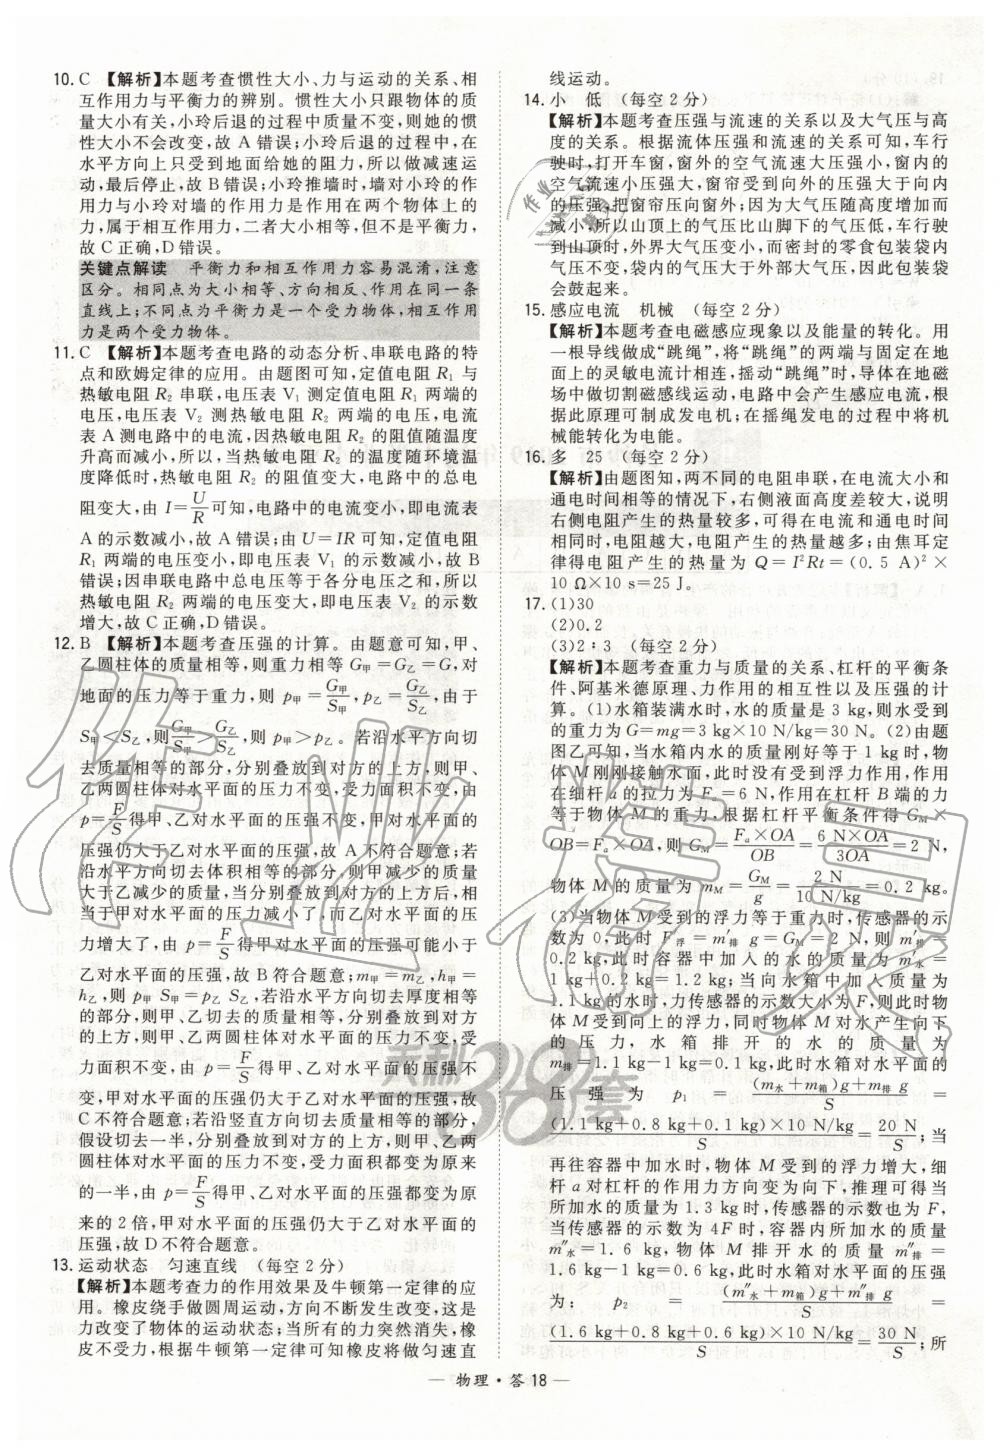 10. C 【解析】本题考查惯性大小、力与运动的关系、相
互作用力与平衡力的辨别。惯性大小只跟物体的质
量大小有关,小玲后退的过程中质量不变,则她的惯
性大小不会改变,故 A 错误;小玲后退的过程中,在
水平方向上只受到地面给她的阻力,所以做减速运
动,最后停止,故 B 错误;小玲推墙时,墙对小玲的作
用力与小玲对墙的作用力是作用在两个物体上的
力,属于相互作用力,二者大小相等,但不是平衡力,
故 C 正确,D 错误。
关键点解读 平衡力和相互作用力容易混淆,注意
区分。相同点为大小相等、方向相反、作用在同一条
直线上;不同点为平衡力是一个受力物体,相互作用
力是两个受力物体。
11. C 【解析】本题考查电路的动态分析、串联电路的特
点和欧姆定律的应用。由题图可知,定值电阻 R₁ 与
热敏电阻 R₂ 串联,电压表 V₁ 测定值电阻 R₁ 两端的
电压,电压表 V₂ 测热敏电阻 R₂ 两端的电压,电流
表 A 测电路中的电流,因热敏电阻 R₂ 的阻值随温度
升高而减小,所以,当热敏电阻 R₂ 的温度随环境温
度降低时,热敏电阻 R₂ 的阻值变大,电路中的总电
阻变大,由 I=U/R 可知,电路中的电流变小,即电流表
A 的示数减小,故 A 错误;由 U=IR 可知,定值电阻
R₁ 两端的电压变小,即电压表 V₁ 的示数减小,故 B
错误;因串联电路中总电压等于各分电压之和,所以
热敏电阻 R₂ 两端的电压变大,即电压表 V₂ 的示数
增大,故 C 正确,D 错误。
12. B 【解析】本题考查压强的计算。由题意可知,甲、
乙圆柱体的质量相等,则重力相等 G甲=G乙=G,对
地面的压力等于重力,则 p甲=G甲/S甲,p乙=G乙/S乙,由于
S甲<S乙,则G甲/S甲>G乙/S乙,则 p甲>p乙。若沿水平方向切
去质量相等的部分,分别叠放到对方的上方,则甲、
乙两圆柱体对水平面的压力不变,受力面积不变,由
p=F/S得甲、乙对水平面的压强不变,甲对水平面的
压强仍大于乙对水平面的压强,故 A 不符合题意;若
沿水平方向切去体积相等的部分,则甲减少的质量
大于乙减少的质量,当分别叠放到对方的上方后,相
当于甲对水平面的压力减小了,而乙对水平面的压
力增大了,由 p=F/S得甲对水平面的压强可能小于
乙对水平面的压强,故 B 符合题意;m甲=m乙,h甲=
h乙,则 ρ甲 S甲=ρ乙 S乙,若沿水平方向切去厚度相等
的部分,则甲、乙切去的质量相等,分别叠放到对方
的上方,则甲、乙两圆柱体对水平面的压力不变,受
力面积不变,由 p=F/S得甲、乙对水平面的压强不
变,甲对水平面的压强仍大于乙对水平面的压强,故
C 不符合题意;若沿竖直方向切去质量相等的部分,
假设切去一半,分别叠放到对方的上方,则甲、乙两
圆柱体对水平面的压力不变,受力面积都变为原来
的一半,由 p=F/S得甲、乙对水平面的压强都变为原
来的 2 倍,甲对水平面的压强仍大于乙对水平面的
压强,故 D 不符合题意。
13. 运动状态 匀速直线 (每空 2 分)
【解析】本题考查力的作用效果及牛顿第一定律的应
用。橡皮绕手做圆周运动,方向不断发生改变,这是
力改变了物体的运动状态;当所有的力突然消失,橡
皮不受力,根据牛顿第一定律可知橡皮将做匀速直
线运动。
14. 小 低 (每空 2 分)
【解析】本题考查压强与流速的关系以及大气压与高
度的关系。根据流体压强和流速的关系可知,车行
驶时,打开车窗,窗外的空气流速大压强小,窗内的
空气流速小压强大,窗帘受到向外的压强大于向内
的压强,把窗帘压向窗外;因为大气压随高度增加而
减小,所以山顶上的气压比山脚下的气压低,车行驶
到山顶时,外界大气压变小,而密封的零食包装袋内
气压不变,袋内的气压大于外部大气压,因此包装袋
会鼓起来。
15. 感应电流 机械 (每空 2 分)
【解析】本题考查电磁感应现象以及能量的转化。用
一根导线做成“跳绳”,将“跳绳”的两端与固定在地
面上的灵敏电流计相连,摇动“跳绳”时,导体在地磁
场中做切割磁感线运动,电路中会产生感应电流,根
据此原理可制成发电机;在摇绳发电的过程中将机
械能转化为电能。
16. 多 25 (每空 2 分)
【解析】由题图知,两不同的电阻串联,在电流大小和
通电时间相等的情况下,右侧液面高度差较大,说明
右侧电阻产生的热量较多,可得在电流和通电时间
相同时,电阻越大,电阻产生的热量越多;由焦耳定
律得电阻产生的热量为 Q=I²Rt=(0.5 A)²×
10 Ω×10 s=25 J。
17. (1)30
(2)0.2
(3)2∶3 (每空 2 分)
【解析】本题考查重力与质量的关系、杠杆的平衡条
件、阿基米德原理、力作用的相互性以及压强的计
算。(1)水箱装满水时,水的质量是 3 kg,则水受到
的重力为 G=mg=3 kg×10 N/kg=30 N。(2)由题
图乙可知,当水箱内水的质量刚好等于 1 kg 时,物
体 M 刚刚接触水面,此时没有受到浮力作用,作用
在细杆 a 的拉力为 Fₐ=6 N,作用在杠杆 B 端的力
等于物体 M 的重力,根据杠杆平衡条件得 G_M×
OB=Fₐ×OA,则 G_M=Fₐ×OA/OB=6 N×OA/3OA=2 N,
物体 M 的质量为 m_M=G_M/g=2 N/10 N/kg=0.2 kg。
(3)当物体 M 受到的浮力等于重力时,传感器的示
数为 0,此时 F浮=m′排 g=G_M=2 N,则 m′排=
0.2 kg,此时容器中加入的水的质量为 m′水=
1 kg+0.2 kg=1.2 kg;当向水箱中加入质量为
1.1 kg的水时,力传感器的示数大小为 F,则此时物
体 M 受到向上的浮力,同时物体 M 对水产生向下
的压力,水箱排开的水的质量为
m排=1.1 kg-1 kg=0.1 kg,此时水箱对水平面的
压强为 p₁=(m水+m箱)g+m排 g/S=
(1.1 kg+0.8 kg+0.1 kg)×10 N/kg/S=20 N/S;当
再往容器中加水时,物体 M 受到的浮力增大,细
杆 a 对杠杆的作用力方向变为向下,推理可得当
所加水的质量为 1.3 kg 时,传感器的示数也为 F,
当传感器的示数为 4F 时,容器内所加水的质量
m″水=1.6 kg,物体 M 排开水的质量 m″排=
1.6 kg-1 kg=0.6 kg,此时水箱对水平面的压强
为:p₂=(m″水+m箱)g+m″排 g/S=
(1.6 kg+0.8 kg+0.6 kg)×10 N/kg/S=30 N/S;所
— 物理·答 18 —
作业精灵
天利38套